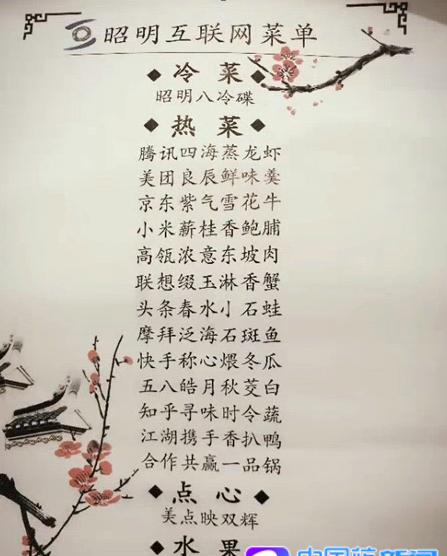 昭明互联网菜单
◆冷菜◆
昭明八冷碟
◆热菜◆
腾讯四海蒸龙虾
美团良辰鲜味羹
京东紫气雪花牛
小米薪桂香鲍脯
高瓴浓意东坡肉
联想缀玉淋香蟹
头条春水小石蛙
摩拜泛海石斑鱼
快手称心煨冬瓜
五八皓月秋茭白
知乎寻味时令蔬
江湖携手香扒鸭
合作共赢一品锅
◆点心◆
美点映双辉
◆水果◆